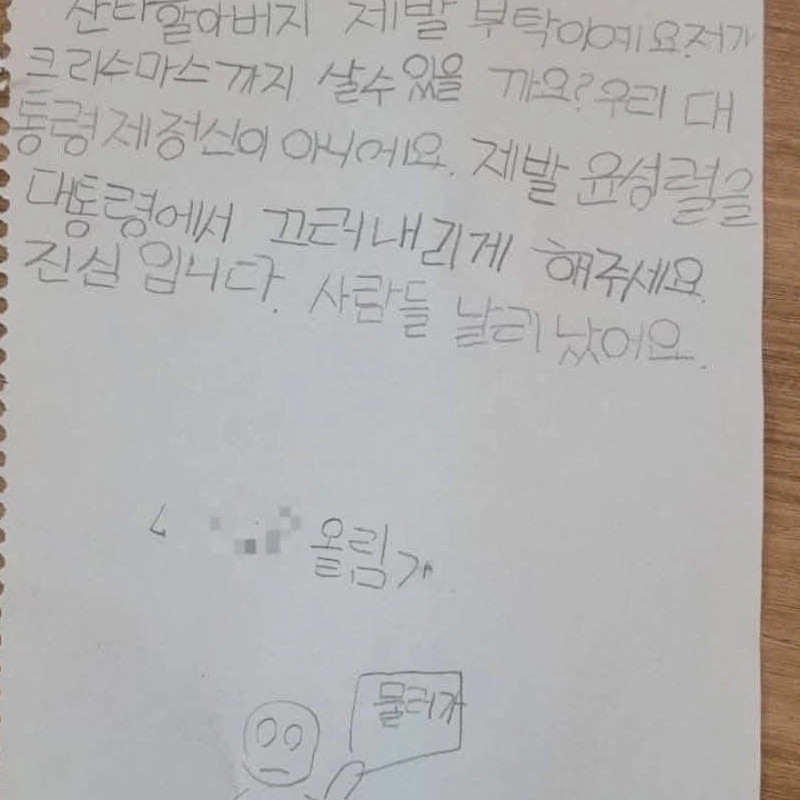 산타할아버지 제발 부탁이예요.저가
크리수마스까지 살수 있을 까요? 우리 대
통령 제정신이 아니에요. 제발 윤성렬을
대통령에서 끄러내리게 해주세요.
진심 입니다. 사람들 날리 났어요.
올림
물러가